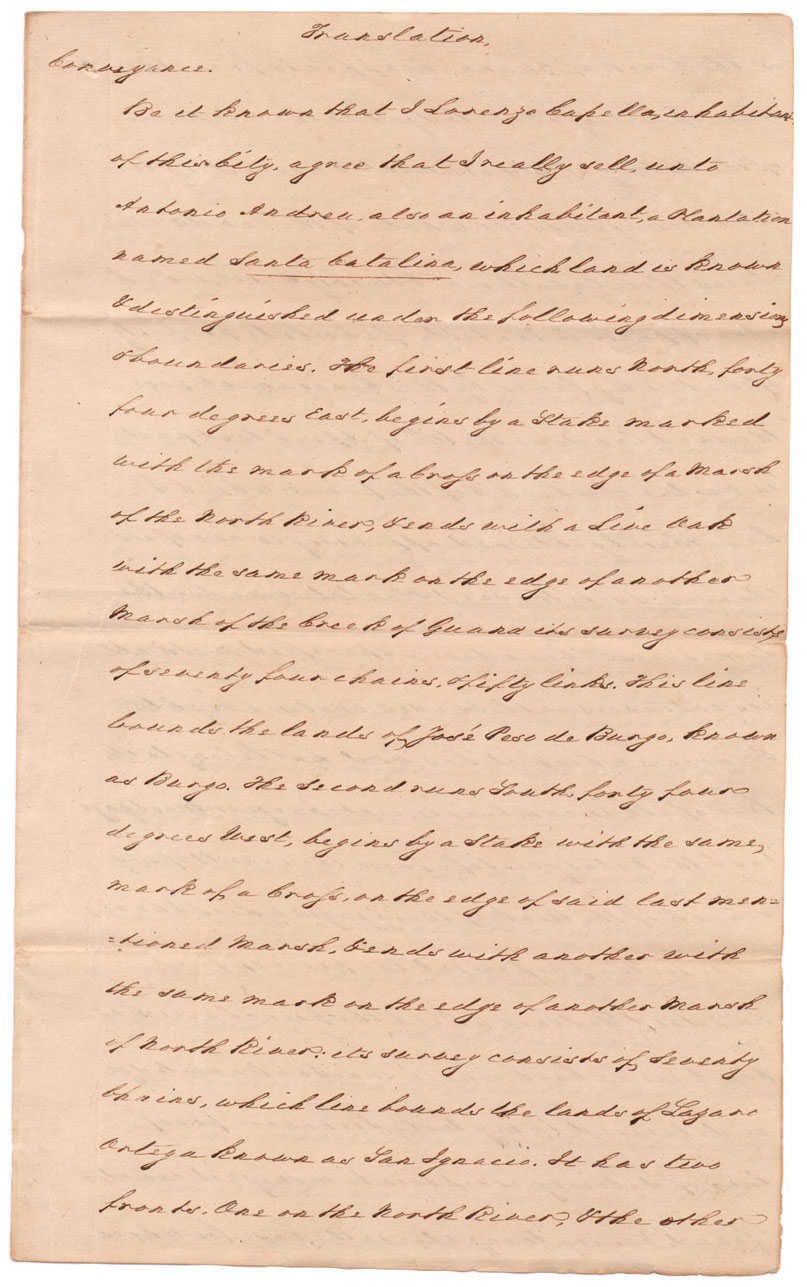 Translation.
Conveyance.
Be it known that I Lorenzo Capella, inhabitant
of this City, agree that I really sell, unto
Antonio Andreu, also an inhabitant, a Plantation
named Santa Catalina, which land is known
& distinguished under the following dimensions
& boundaries. The first line runs North, forty
four degrees East, begins by a Stake marked
with the mark of a Cross on the edge of a Marsh
of the North River, & ends with a Live Oak
with the same mark on the edge of another
Marsh of the Creek of Guana its survey consists
of seventy four chains, & fifty links. This line
bounds the lands of José Peso de Burgo, known
as Burgo. The Second runs South, forty four
degrees West, begins by a Stake with the same,
mark of a Cross, on the edge of said last men=
=tioned Marsh, & ends with another with
the same mark on the edge of another Marsh
of North River: its survey consists of Seventy
Chains, which line bounds the lands of Lazaro
Ortega known as San Ignacio. It has two
fronts. One on the North River, & the other